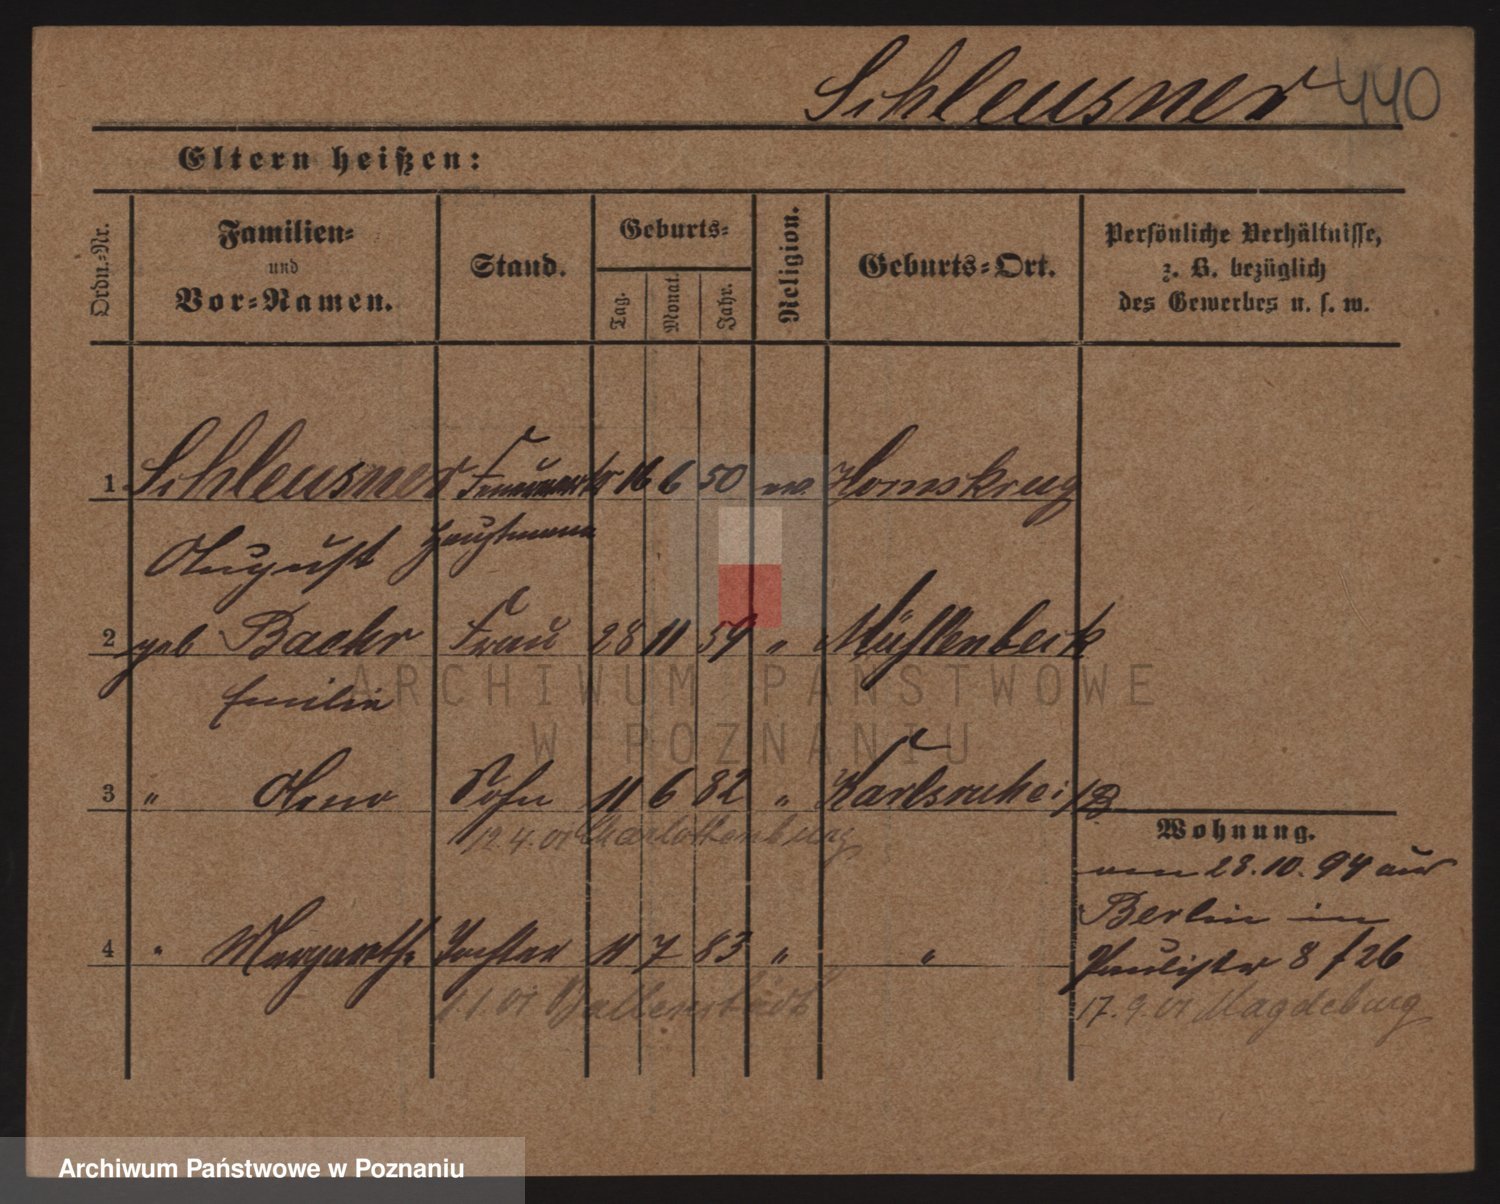 Schleusner 440
Eltern heißen:
Ordn.-Nr.
Familien-
und
Vor-Namen.
Stand.
Geburts-
Tag.
Monat.
Jahr.
Religion.
Geburts-Ort.
Persönliche Verhältnisse,
z. B. bezüglich
des Gewerbes u. s. w.
1 Schleusner 16 6 50 ev. Hornskrug
August Hauptmann
2 geb Baehr Frau 28 11 59 " Mühlenbeck
Emilie
3 " Arno Sohn 11 6 82 " Karlsruhe i/B
12.4.01 Charlottenburg
Wohnung.
von 28.10.94 aus
Berlin in
4 " Margarethe Tochter 11 7 83 " "
Paulistr 8 f 26
1.1.01 Ballenstädt
17.9.01 Magdeburg
ARCHIWUM PAŃSTWOWE
W POZNANIU
Archiwum Państwowe w Poznaniu